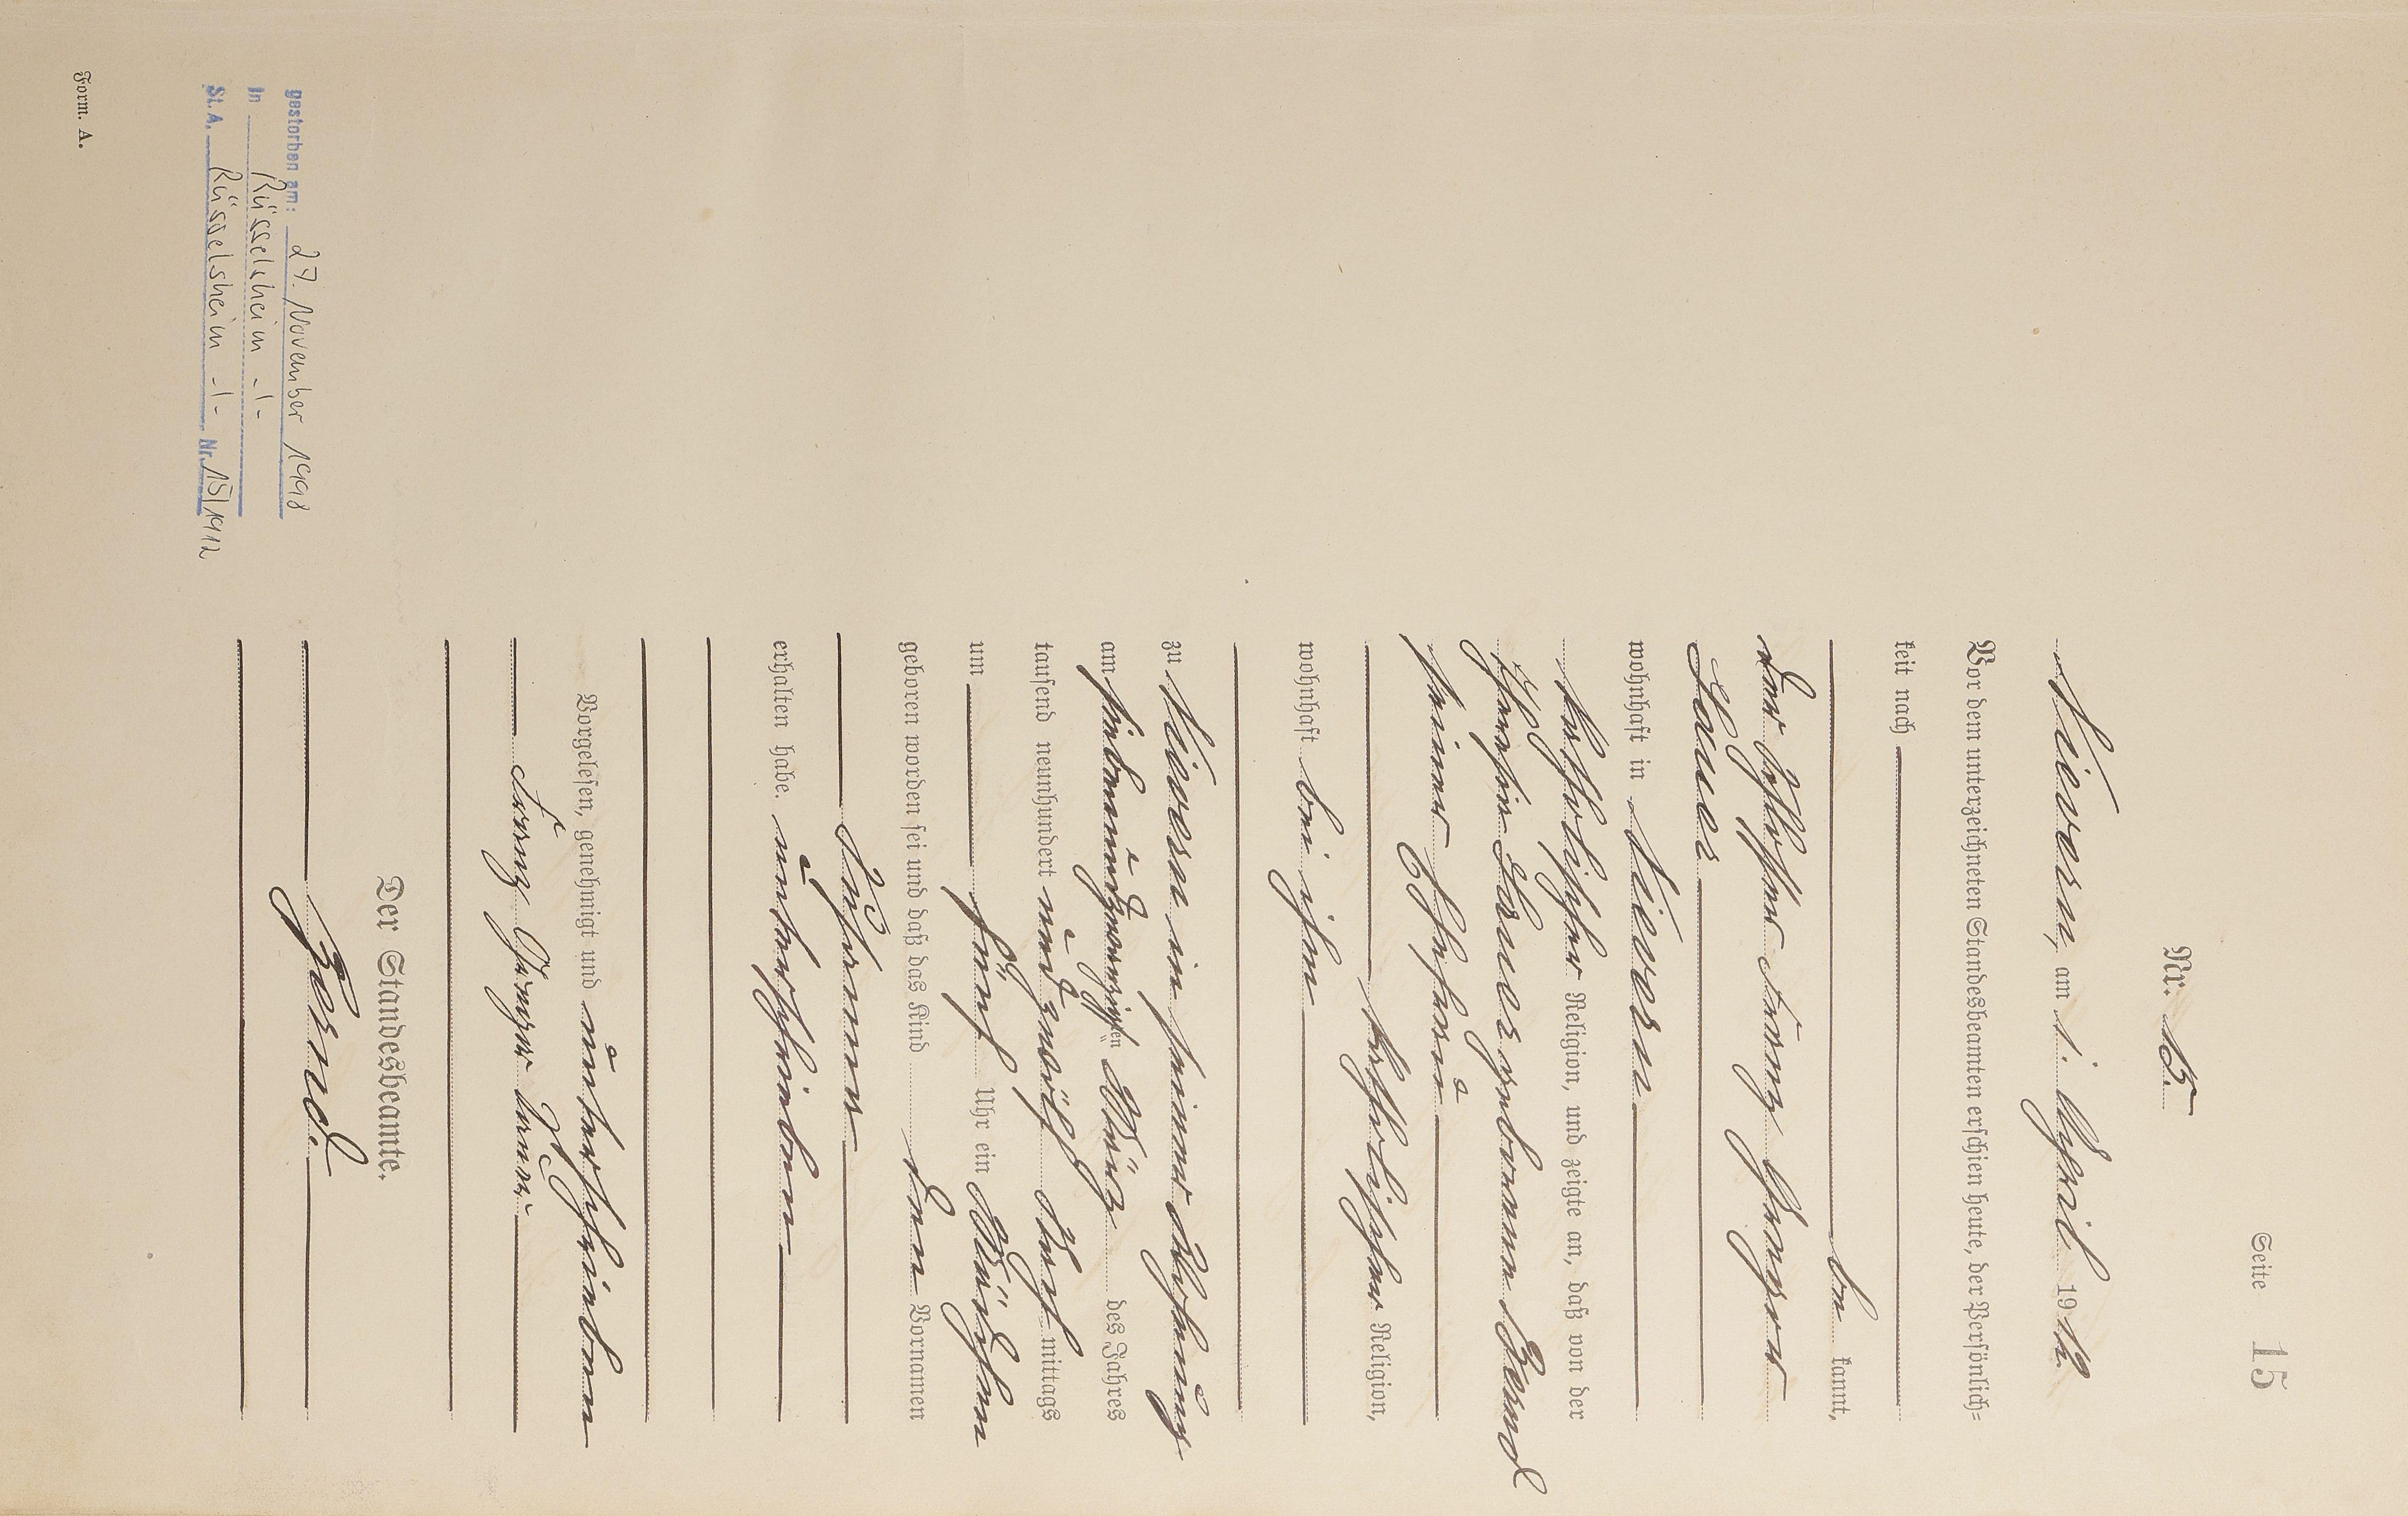 Seite 15
Nr. 15.
Nievern, am 1. April 1912.
Vor dem unterzeichneten Standesbeamten erschien heute, der Persönlich-
keit nach
be kannt,
der Schlosser Franz Gregor
Sauer
wohnhaft in Nievern
katholischer Religion, und zeigte an, daß von der
Theresia Sauer geborenen Bernd
seiner Ehefrau
katholischer Religion,
wohnhaft bei ihm
zu Nievern in seiner Wohnung
am siebenundzwanzigsten März des Jahres
tausend neunhundert und zwölf Nach mittags
um fünf Uhr ein Mädchen
geboren worden sei und daß das Kind den Vornamen
erhalten habe. unterschrieben
Vorgelesen, genehmigt und unterschrieben
Franz Gregor Sauer.
Der Standesbeamte.
Bernd.
gestorben am: 27. November 1998
in Rüsselsheim -1-
St. A. Rüsselsheim -1- Nr. 15/1912
Form. A.